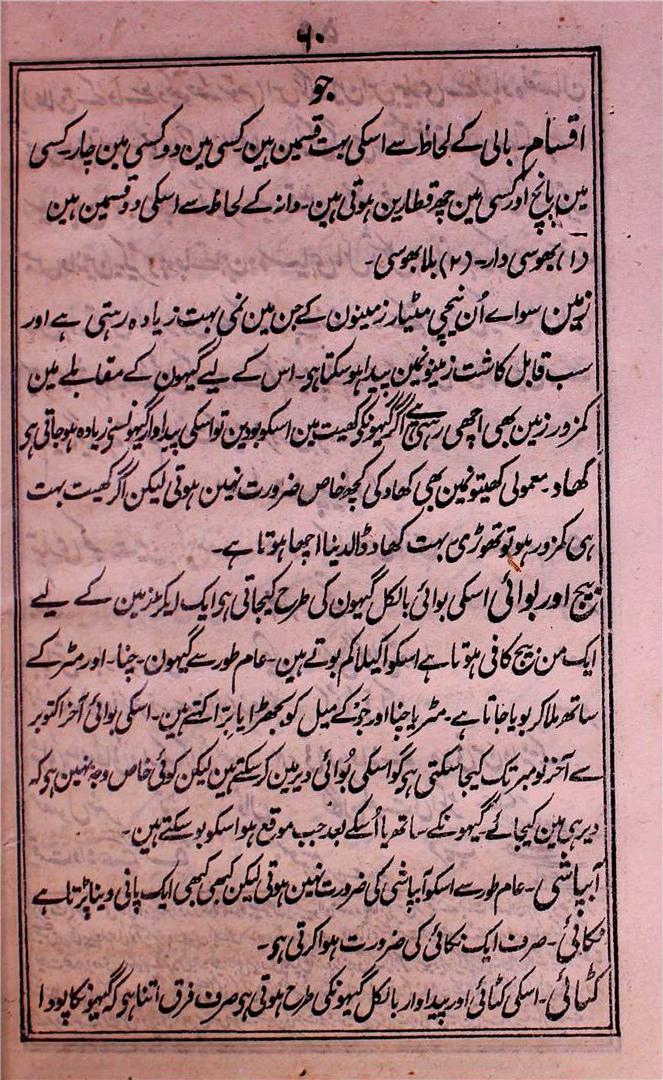 ۶۰
جو
اقسام۔ بالی کے لحاظ سے اسکی بہت قسمین ہین کسی مین دو کسی مین چار۔ کسی
مین پانچ اور کسی مین چھ قطارین ہوتی ہین۔ دانہ کے لحاظ سے اسکی دو قسمین ہین
(۱) بھوسی دار۔ (۲) بلا بھوسی۔
زمین سواے اُن نیچی مٹیار زمینون کے جن مین نمی بہت زیادہ رہتی ہے اور
سب قابل کاشت زمینونمین پیدا ہو سکتا ہو۔ اس کے لیے گیہون کے مقابلے مین
کمزور زمین بھی اچھی رہتی ہے اگر گیہونکی کھیت مین اسکو بودین تو اسکی پیداوار گیہونسی زیادہ ہو جاتی ہی
کھاد۔ معمولی کھیتونمین بھی کھاد کی کچھ خاص ضرورت نہین ہوتی لیکن اگر کھیت بہت
ہی کمزور ہو تو تھوڑی بہت کھاد ڈالدینا اچھا ہوتا ہے۔
بیج اور بوائی اسکی بوائی بالکل گیہون کی طرح کیجاتی ہی ایک ایکڑ زمین کے لیے
ایک من بیج کافی ہوتا ہے اسکو اکیلا کم بوتے ہین۔ عام طور سے گیہون۔ چنا۔ اور مٹر کے
ساتھ ملا کر بویا جاتا ہے۔ مٹر یا چنا اور جَو کے میل کو بجھڑا یا برّا کہتے ہین۔ اسکی بوائی آخر اکتوبر
سے آخر نومبر تک کیجا سکتی ہی گو اسکی بُوائی دیر مین کر سکتے ہین لیکن کوئی خاص وجہ نہین ہو کہ
دیر ہی مین کیجائے۔ گیہونکے ساتھ یا اُسکے بعد جب موقع ہو اسکو بو سکتے ہین۔
آبپاشی۔ عام طور سے اسکو آبپاشی کی ضرورت نہین ہوتی لیکن کبھی کبھی ایک پانی دینا پڑتا ہے
نکائی۔ صرف ایک نکائی کی ضرورت ہوا کرتی ہو۔
کٹائی۔ اسکی کٹائی اور پیداوار بالکل گیہونکی طرح ہوتی ہو صرف فرق اتنا ہو کہ گیہونکا پودا